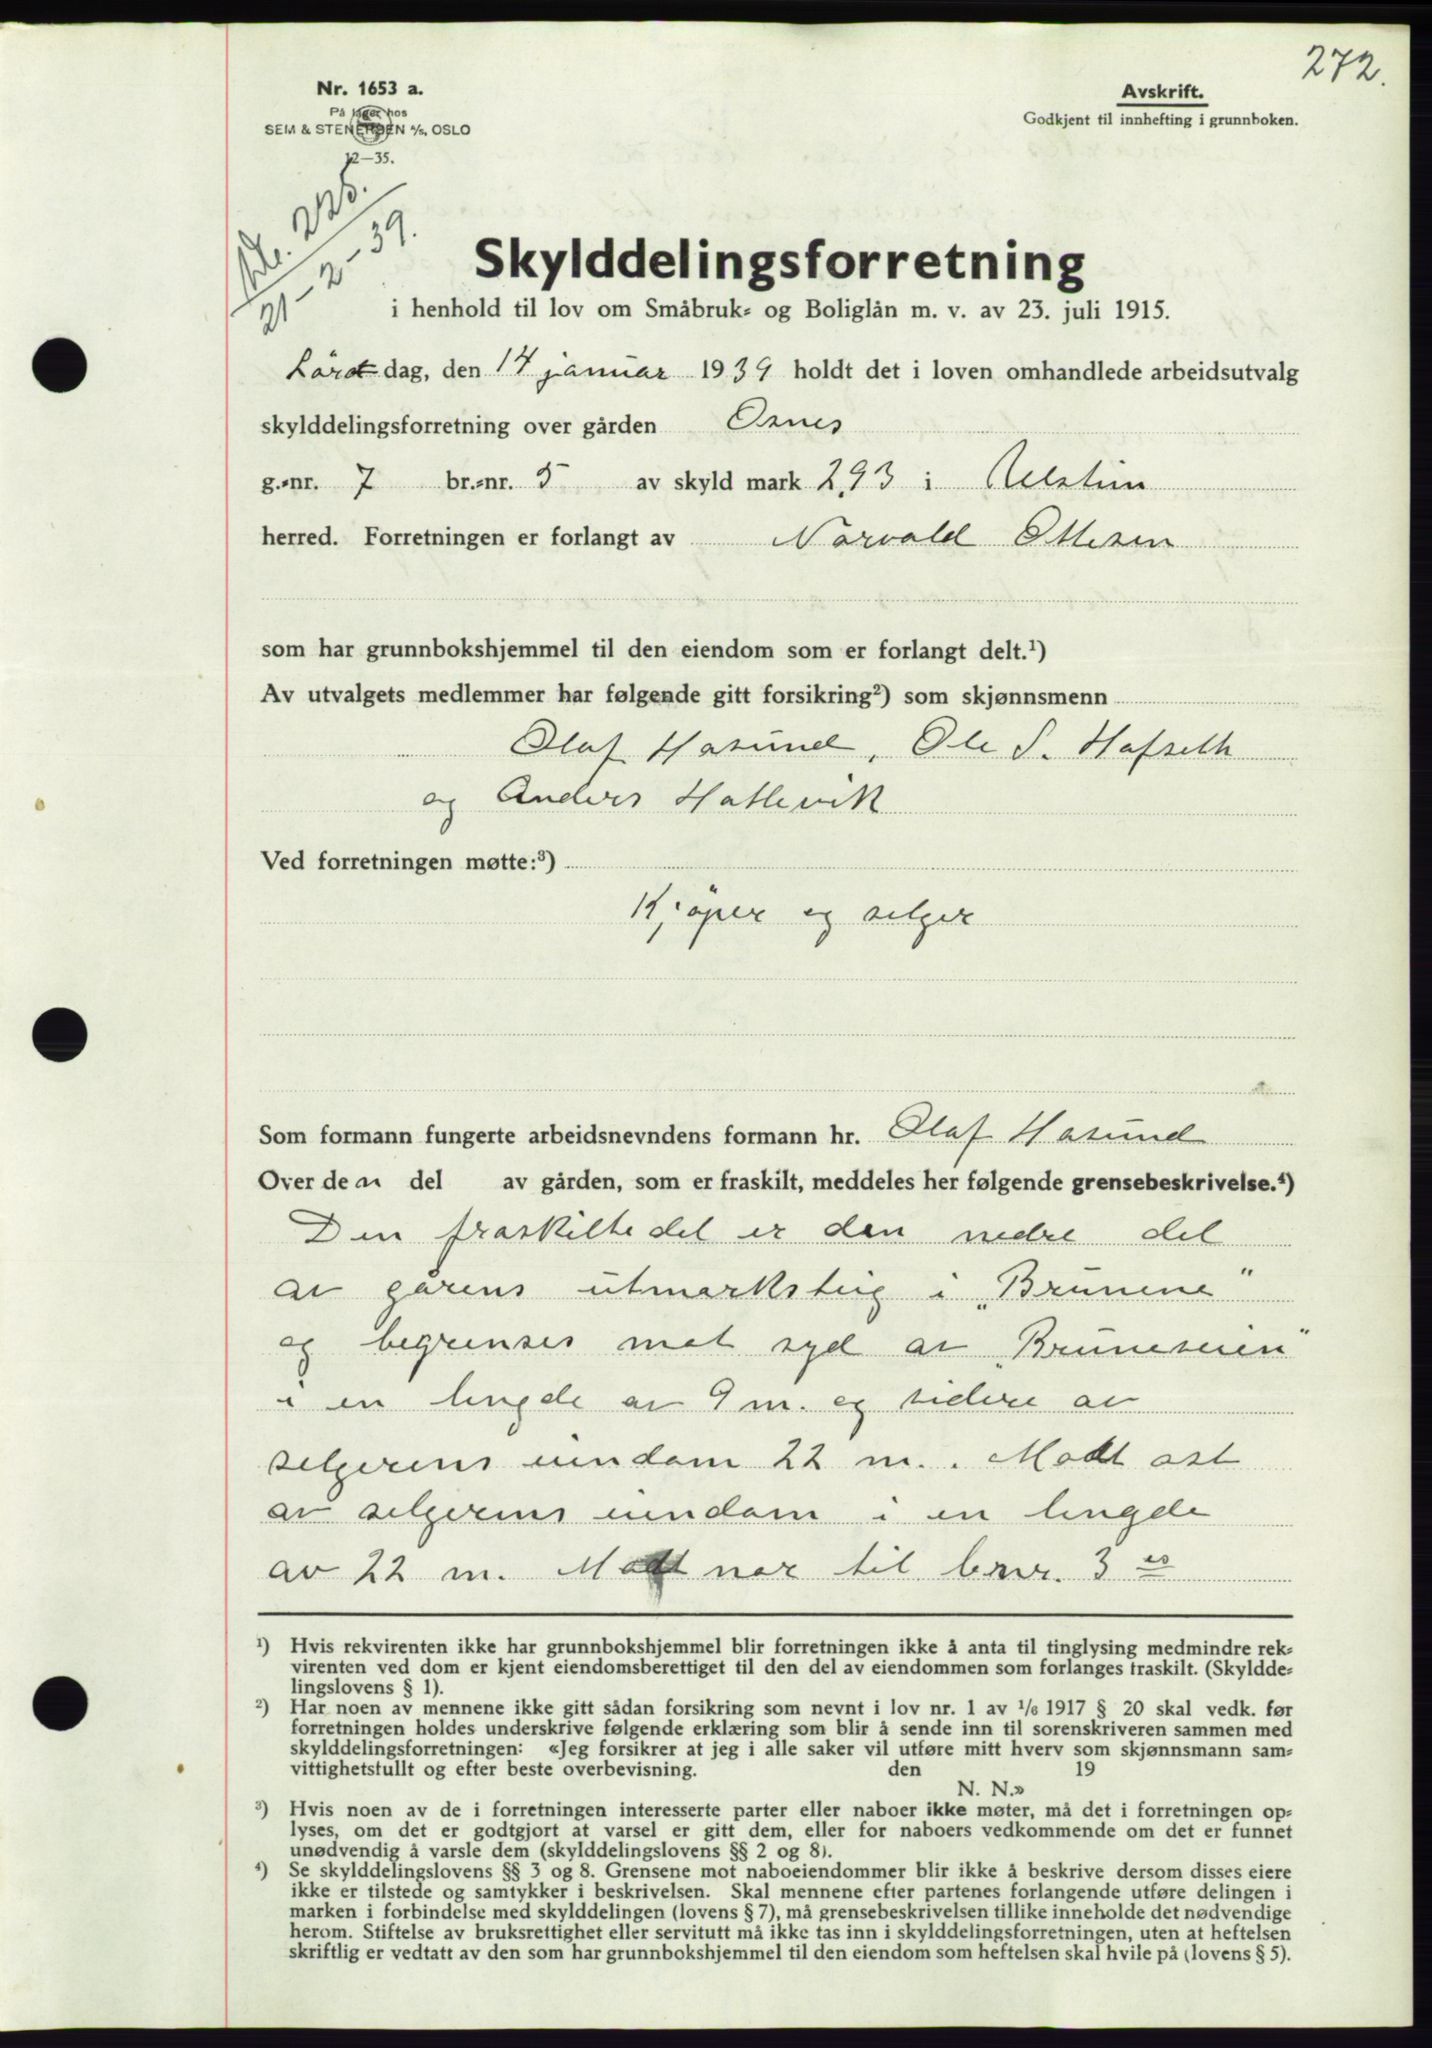 272.
Nr. 1653 a.
På lager hos
SEM & STENERSEN A/S, OSLO
12—35.
Avskrift.
Godkjent til innhefting i grunnboken.
225.
21-2-39.
Skylddelingsforretning
i henhold til lov om Småbruk- og Boliglån m. v. av 23. juli 1915.
Lördag, den 14 januar 1939 holdt det i loven omhandlede arbeidsutvalg
skylddelingsforretning over gården Osnes
g.-nr. 7 br.-nr. 5 av skyld mark 2,93 i Ulstein
herred. Forretningen er forlangt av Norvald Ottesen
som har grunnbokshjemmel til den eiendom som er forlangt delt.¹)
Av utvalgets medlemmer har følgende gitt forsikring²) som skjønnsmenn
Olaf Hasund, Ole S. Hafseth
og Anders Hattevik
Ved forretningen møtte:³)
Kjöper og selger
Som formann fungerte arbeidsnevndens formann hr. Olaf Hasund
Over den del av gården, som er fraskilt, meddeles her følgende grensebeskrivelse.⁴)
Den fraskilte del er den nedre del
av gårens utmarksteig i „Brunene"
og begrenses mot syd av „Bruneveien"
i en lengde av 9 m. og videre av
selgerens eiendom 22 m.. Modt ost
av selgerens eiendom i en lengde
av 22 m. Modt nor til brnr. 3 es
¹) Hvis rekvirenten ikke har grunnbokshjemmel blir forretningen ikke å anta til tinglysing medmindre rek-
virenten ved dom er kjent eiendomsberettiget til den del av eiendommen som forlanges fraskilt. (Skyldde-
lingslovens § 1).
²) Har noen av mennene ikke gitt sådan forsikring som nevnt i lov nr. 1 av 1/6 1917 § 20 skal vedk. før
forretningen holdes underskrive følgende erklæring som blir å sende inn til sorenskriveren sammen med
skylddelingsforretningen: «Jeg forsikrer at jeg i alle saker vil utføre mitt hverv som skjønnsmann sam-
vittighetsfullt og efter beste overbevisning. den 19
N. N.»
³) Hvis noen av de i forretningen interesserte parter eller naboer ikke møter, må det i forretningen op-
lyses, om det er godtgjort at varsel er gitt dem, eller for naboers vedkommende om det er funnet
unødvendig å varsle dem (skylddelingslovens §§ 2 og 8).
⁴) Se skylddelingslovens §§ 3 og 8. Grensene mot naboeiendommer blir ikke å beskrive dersom disses eiere
ikke er tilstede og samtykker i beskrivelsen. Skal mennene efter partenes forlangende utføre delingen i
marken i forbindelse med skylddelingen (lovens § 7), må grensebeskrivelsen tillike inneholde det nødvendige
herom. Stiftelse av bruksrettighet eller servitutt må ikke tas inn i skylddelingsforretningen, uten at heftelsen
skriftlig er vedtatt av den som har grunnbokshjemmel til den eiendom som heftelsen skal hvile på (lovens § 5).